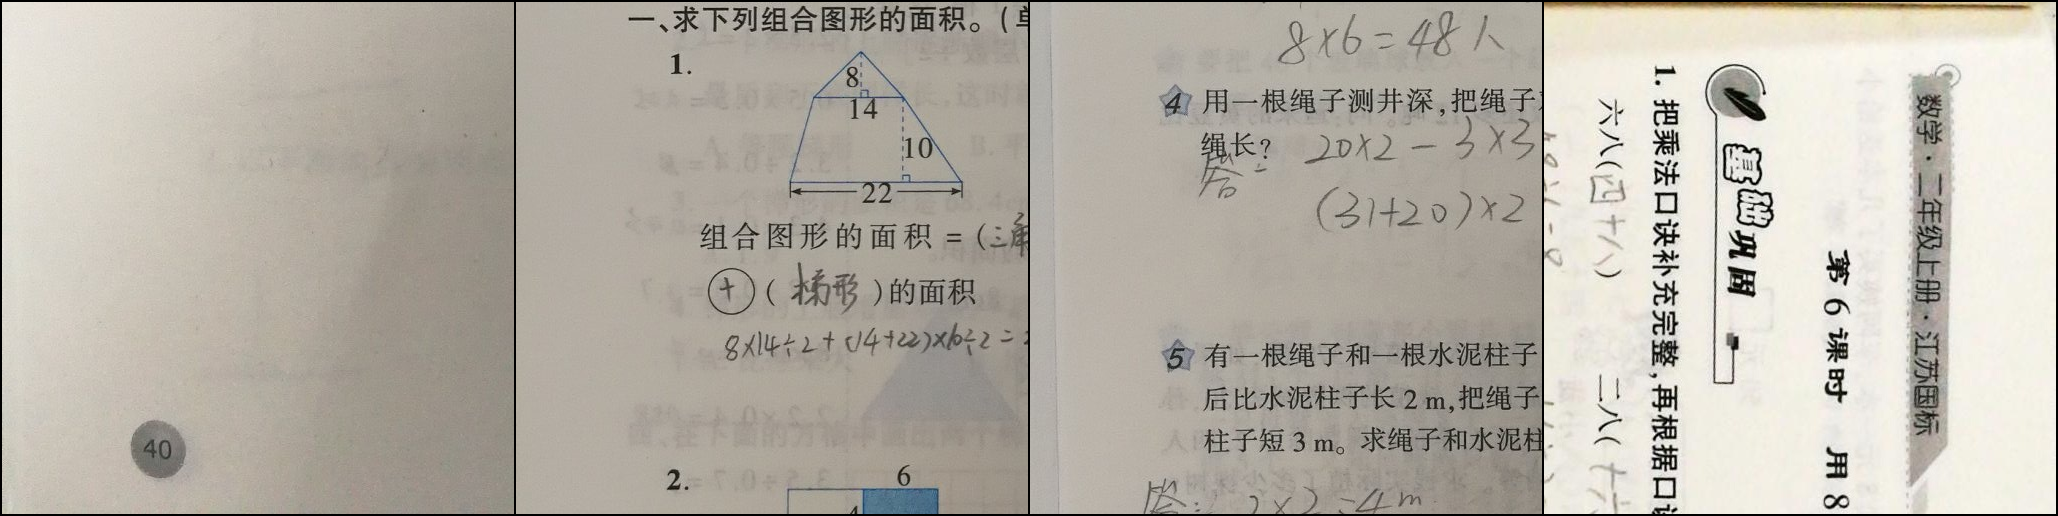 40
一、求下列组合图形的面积。
1.
8
14
10
22
组合图形的面积 = (三角
+ ( 梯形 )的面积
8×14÷2+(14+22)×10÷2=
2.
6
4
8×6=48人
4 用一根绳子测井深,把绳子
绳长? 20×2-3×3
答:
(31+20)×2
5 有一根绳子和一根水泥柱子
后比水泥柱子长 2 m,把绳子
柱子短 3 m。求绳子和水泥柱
答: 2×2=4m
数学·二年级上册·江苏国标
第 6 课时 用 8
基础巩固
1. 把乘法口诀补充完整,再根据口诀
六八(四十八) 二八(十六